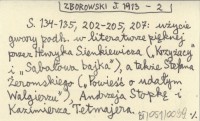 ZBOROWSKI J. 1973 - 2
S. 134-135, 202-205, 207: użycie
gwary podh. w literaturze pięknej
przez Henryka Sienkiewicza („Krzyżacy"
i „Sabałowa bajka"), a także Stefana
Żeromskiego („Powieść o udałym
Walgierzu"), Andrzeja Stopkę i
Kazimierza Tetmajera.